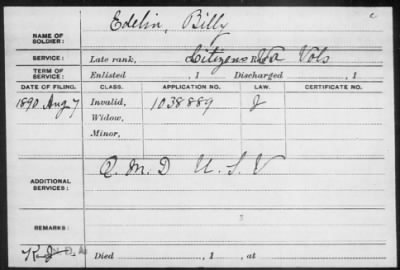 c
NAME OF SOLDIER: Edelin, Billy
SERVICE: Late rank, Citizens Vols
TERM OF SERVICE: Enlisted , 1 Discharged , 1
DATE OF FILING. CLASS. APPLICATION NO. LAW. CERTIFICATE NO.
1890 Aug 7 Invalid, 1038889 J
Widow,
Minor,
ADDITIONAL SERVICES: Q. M. D U. S. V
REMARKS:
Died , 1 , at